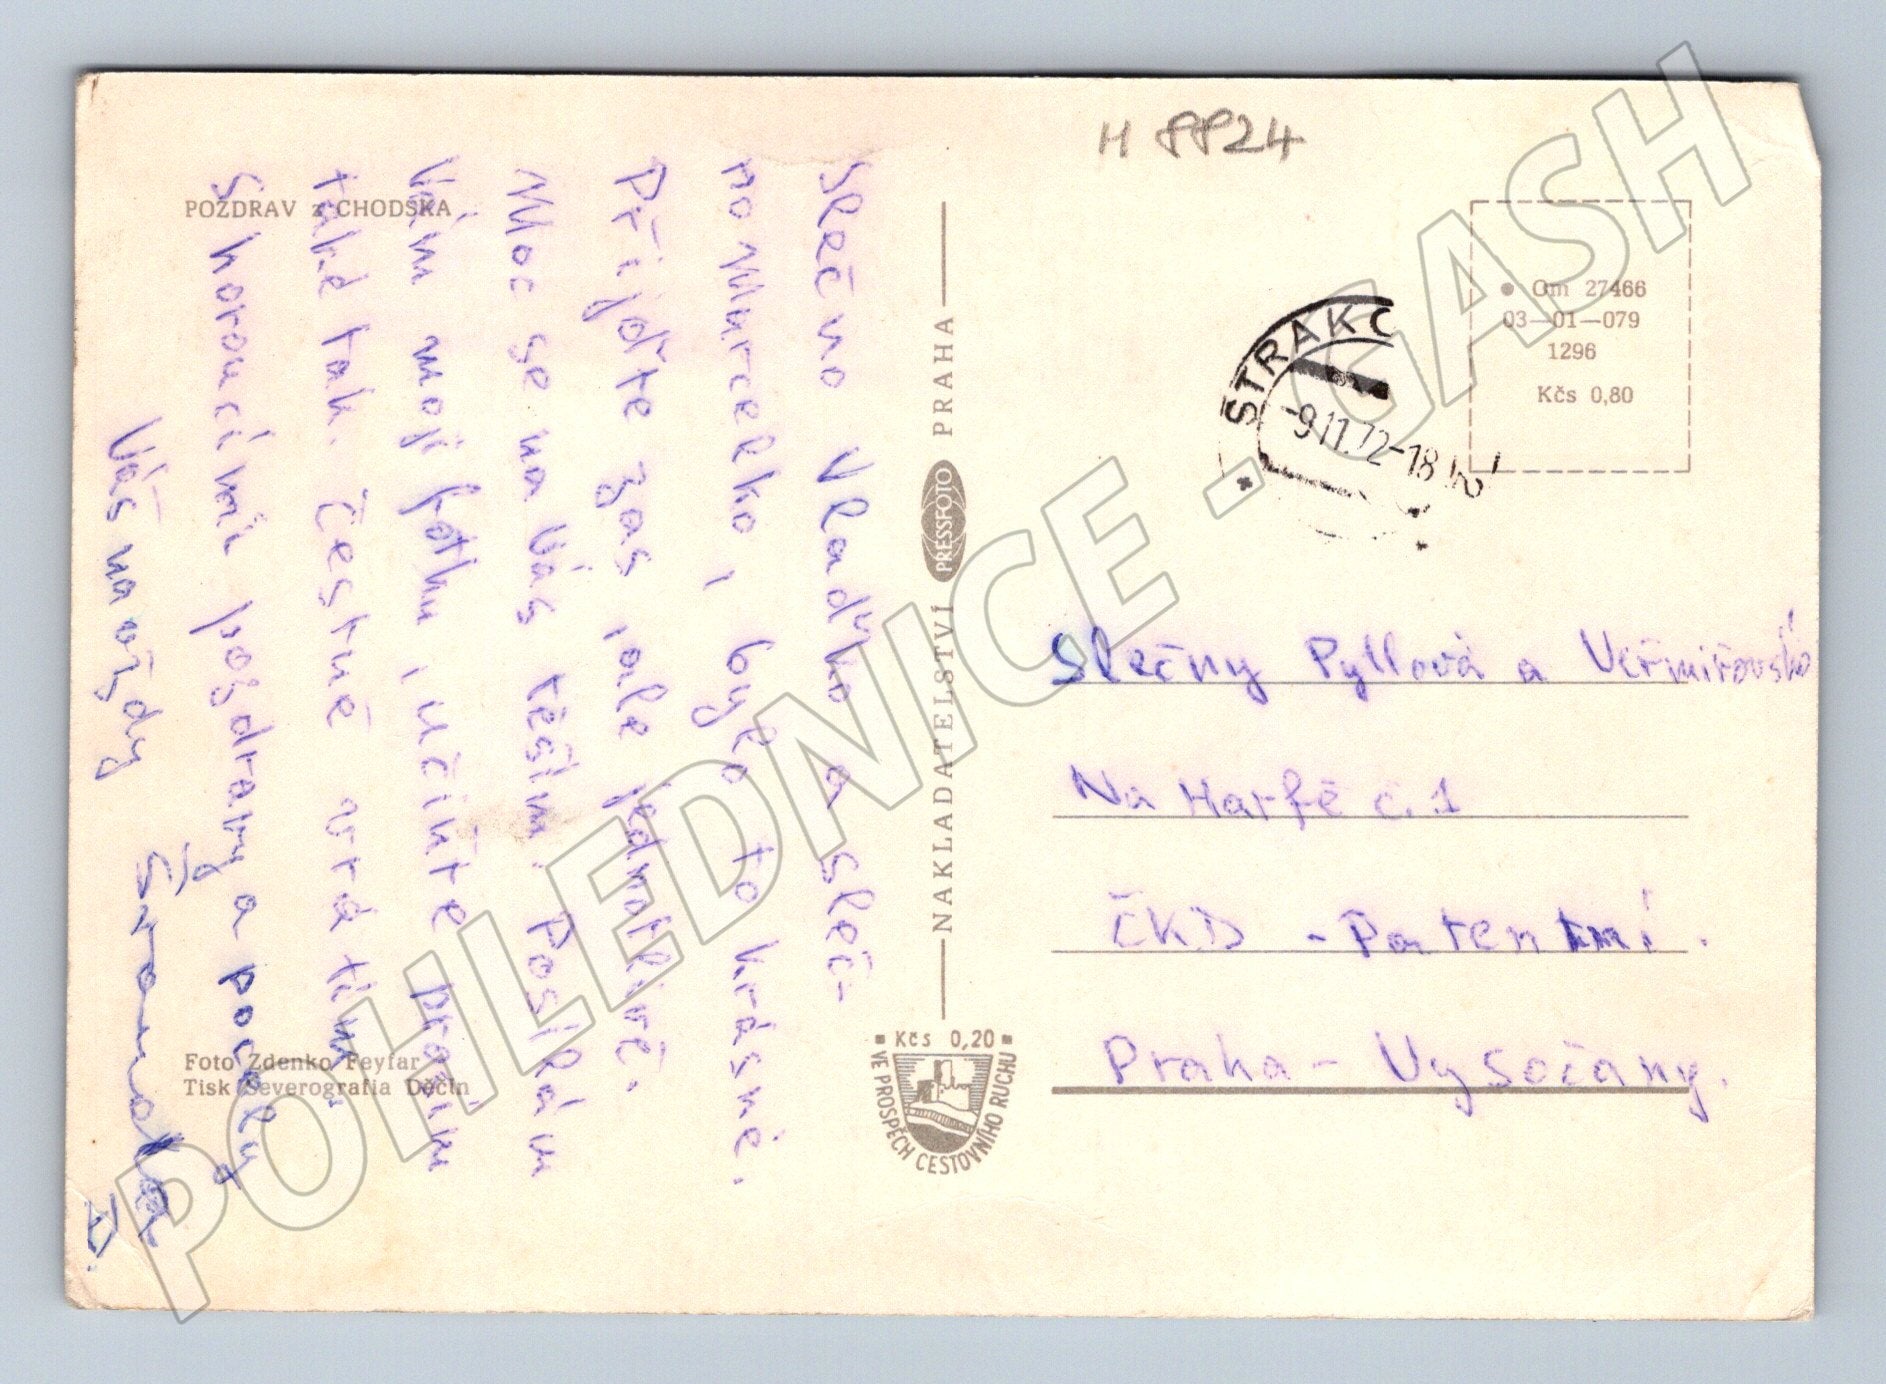 H 8824
POZDRAV z CHODSKA
Slečno Vlaďko a sleč-
no Murcelko, bylo to krásné.
Přijďte zas, ale jednotlivě.
Moc se na Vás těším. Posílám
Vám moji fotku, učiňte prosím
také tak. Čestně vrátím
S horoucími pozdravy a pocely
Váš navždy
D.
Foto Zdenko Feyfar
Tisk Severografia Děčín
NAKLADATELSTVÍ PRESSFOTO PRAHA
Kčs 0,20
VE PROSPĚCH CESTOVNÍHO RUCHU
STRAKO
-9.11.72-18
Om 27466
03—01—079
1296
Kčs 0,80
Slečny Pyllová a
Na Harfě č. 1
ČKD - Patentní.
Praha - Vysočany.
POHLEDNICE - GASH